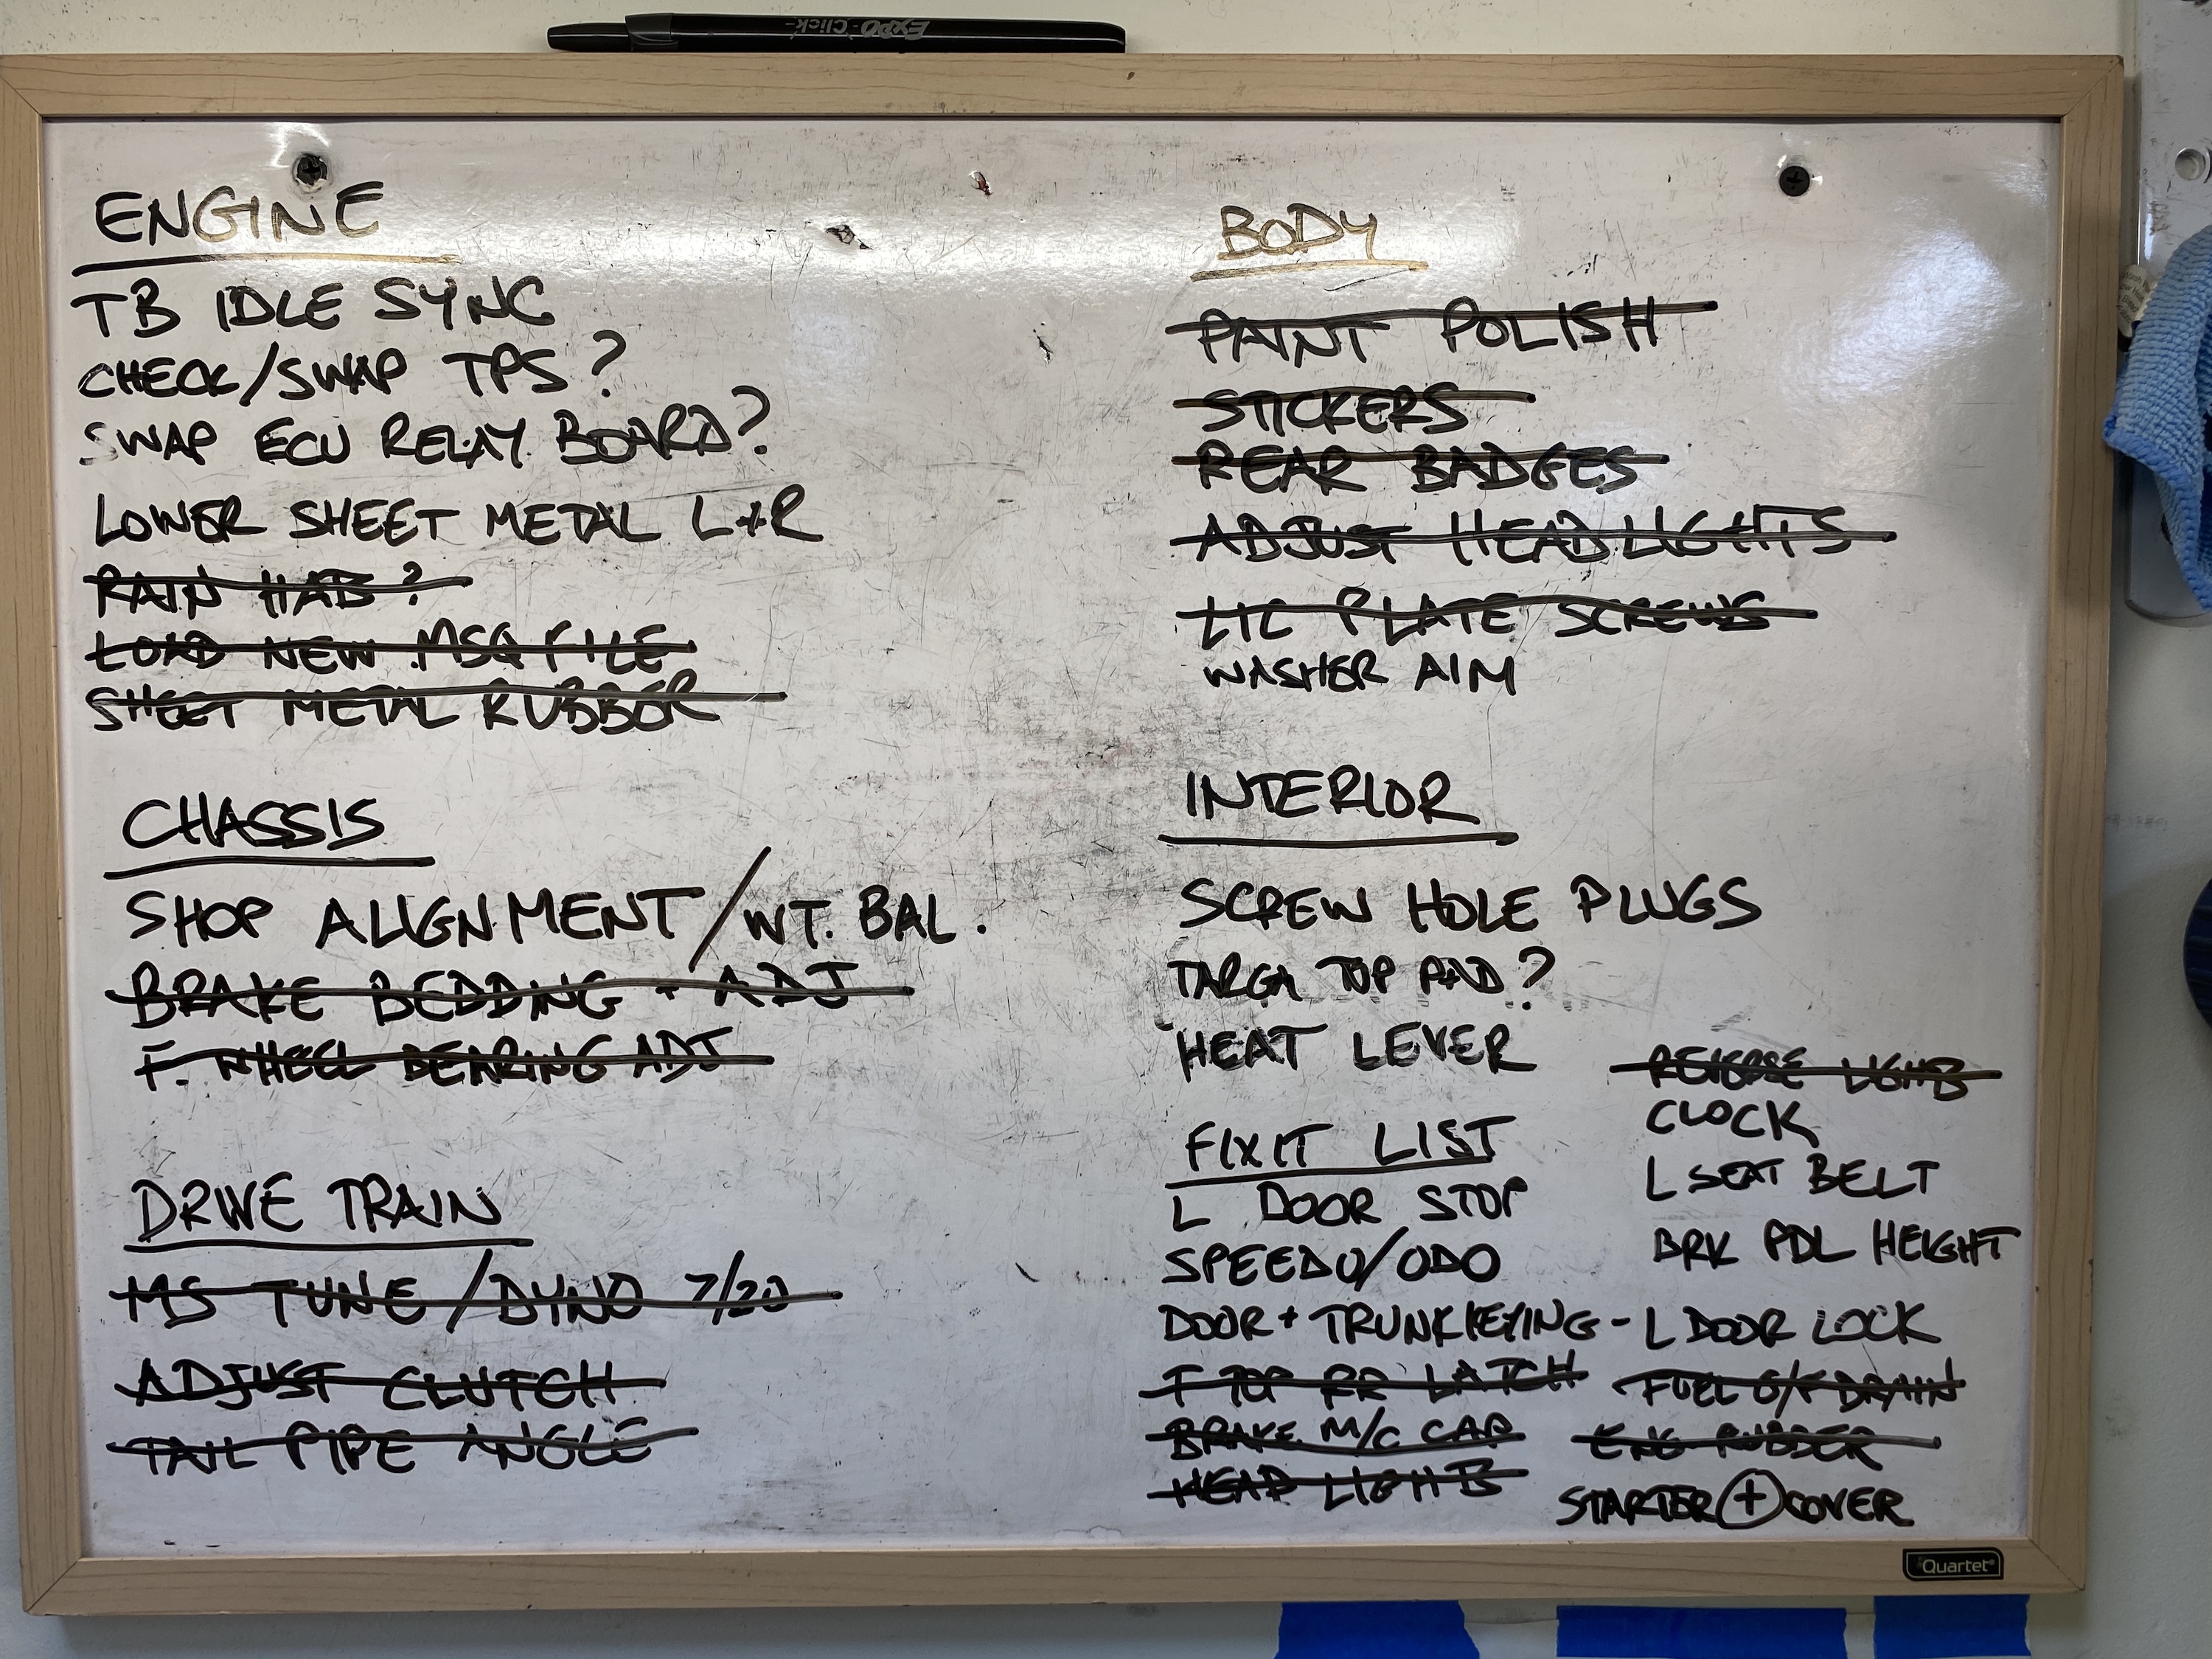 EXPO Click
ENGINE
TB IDLE SYNC
CHECK/SWAP TPS?
SWAP ECU RELAY BOARD?
LOWER SHEET METAL L+R
RAIN HAT?
LOAD NEW .MSQ FILE
SHEET METAL RUBBER
CHASSIS
SHOP ALIGNMENT/WT. BAL.
BRAKE BEDDING + ADJ
F. WHEEL BEARING ADJ
DRIVE TRAIN
MS TUNE/DYNO 7/20
ADJUST CLUTCH
TAIL PIPE ANGLE
BODY
PAINT POLISH
STICKERS
REAR BADGES
ADJUST HEADLIGHTS
LIC PLATE SCREWS
WASHER AIM
INTERIOR
SCREW HOLE PLUGS
TARGA TOP PAD?
HEAT LEVER
FIXIT LIST
L DOOR STOP
SPEEDO/ODO
DOOR + TRUNK KEYING - L DOOR LOCK
T TOP RR LATCH
BRAKE M/C CAP
HEAD LIGHTS
REVERSE LIGHTS
CLOCK
L SEAT BELT
BRK PDL HEIGHT
FUEL O/F DRAIN
ENG RUBBER
STARTER + COVER
Quartet